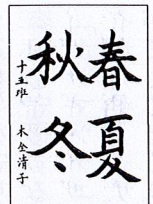 春夏
秋冬
十五班 木全清子